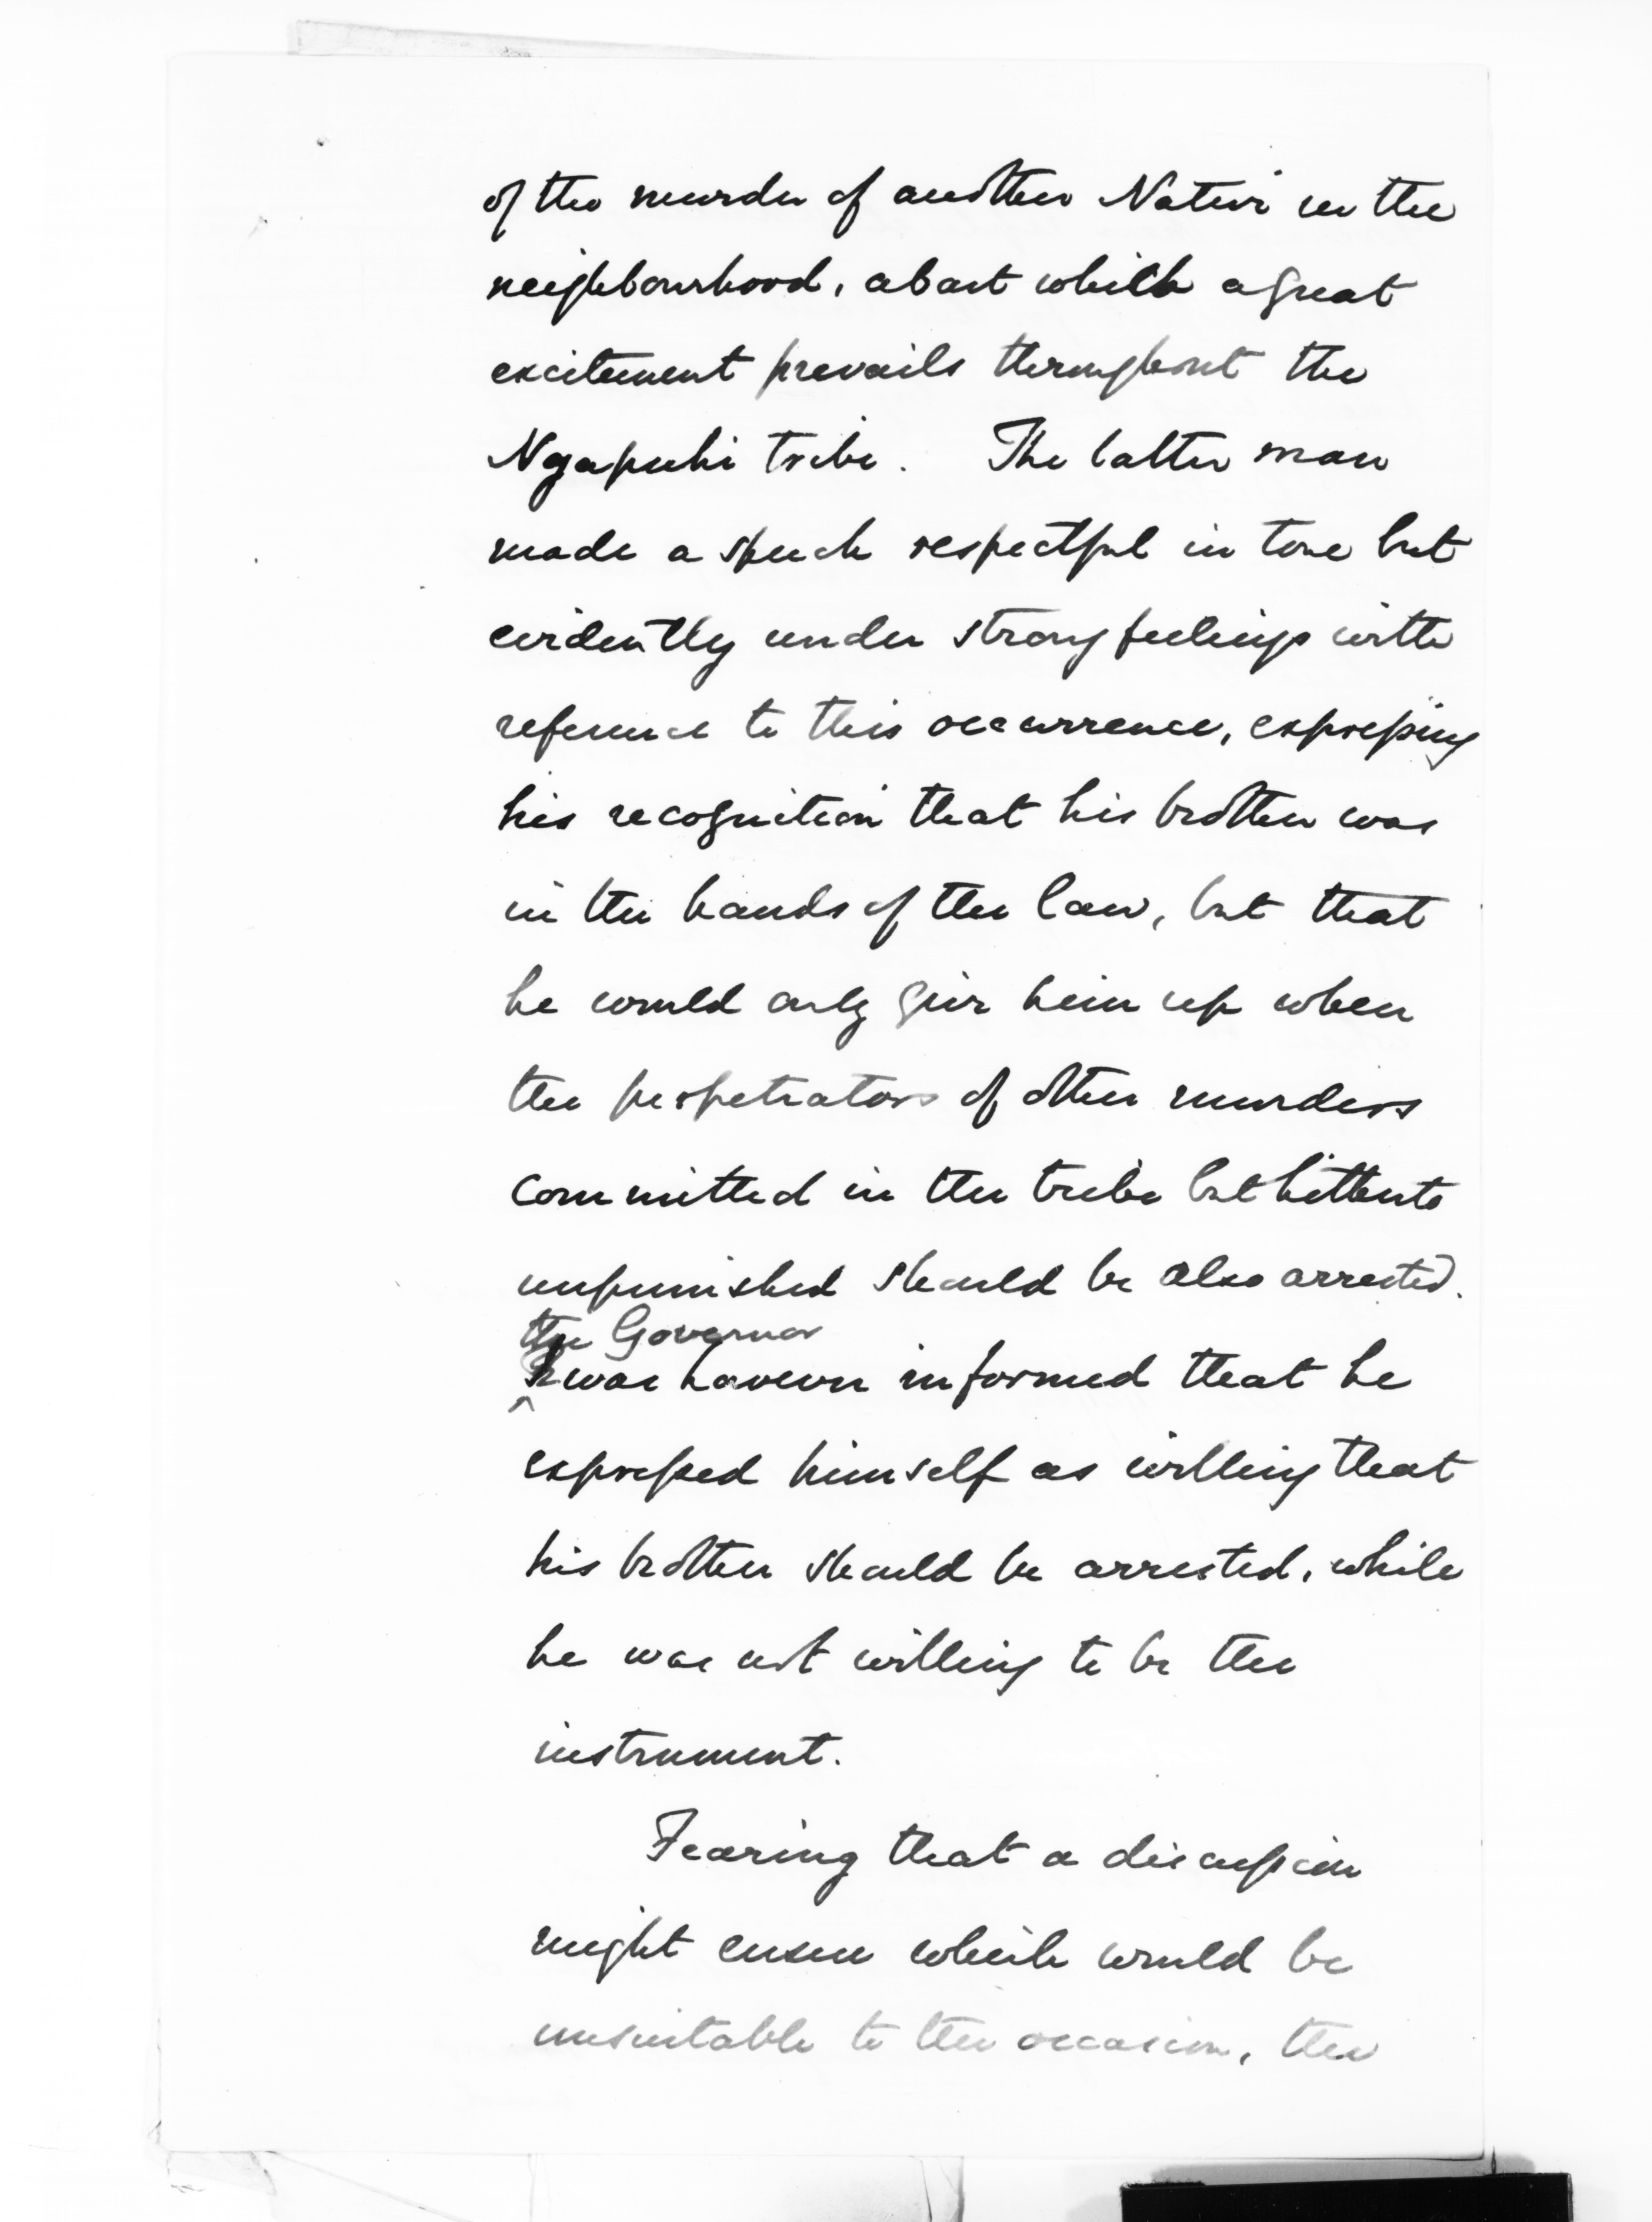 of the murder of another Native in the
neighbourhood, about which a great
excitement prevails throughout the
Ngapuhi tribe. The latter man
made a speech respectful in tone but
evidently under strong feelings with
reference to this occurrence, expressing
his recognition that his brother was
in the hands of the law, but that
he would only give him up when
the perpetrators of other murders
committed in the tribe but hitherto
unpunished should be also arrested.
the Governor
was however informed that he
expressed himself as willing that
his brother should be arrested, while
he was not willing to be the
instrument.
Fearing that a discussion
might ensue which would be
unsuitable to the occasion, the